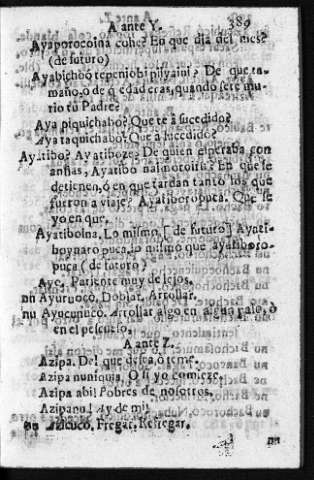 A ante Y. 389
Ayaporocoina cohe? En que dia del mes?
(de futuro)
Ayabichoò repeniobi pilyaini? De que ta-
maño, ò de q edad eras, quando se te mu-
rio tu Padre?
Aya piquichabo? Que te à sucedido?
Aya taquichabo? Que à sucedido?
Ayatibo? Ayatiboze? De quien esperaba con
ansias, Ayatibo nalmotoiru? En que se
detienen, ò en que tardan tanto los que
fueron a viaje? Ayatiboropuca. Que se
yo en que.
Ayatiboina, Lo mismo, [de futuro] Ayati-
boynaro puca, lo mismo que ayatiboro-
puca (de futuro)
Aye, Pariente muy de lejos.
nu Ayuruoco, Doblar, Arrollar.
nu Ayucunuco. Arrollar algo en algun palo, ò
en el pescueso.
A ante Z.
Azipa. Del que desea, ò teme.
Azipa nuniquia, O si yo comieze,
Azipa abi! Pobres de nosotros.
Azipanu! Ay de mi!
nu Azicuco, Fregar, Refregar.
nu